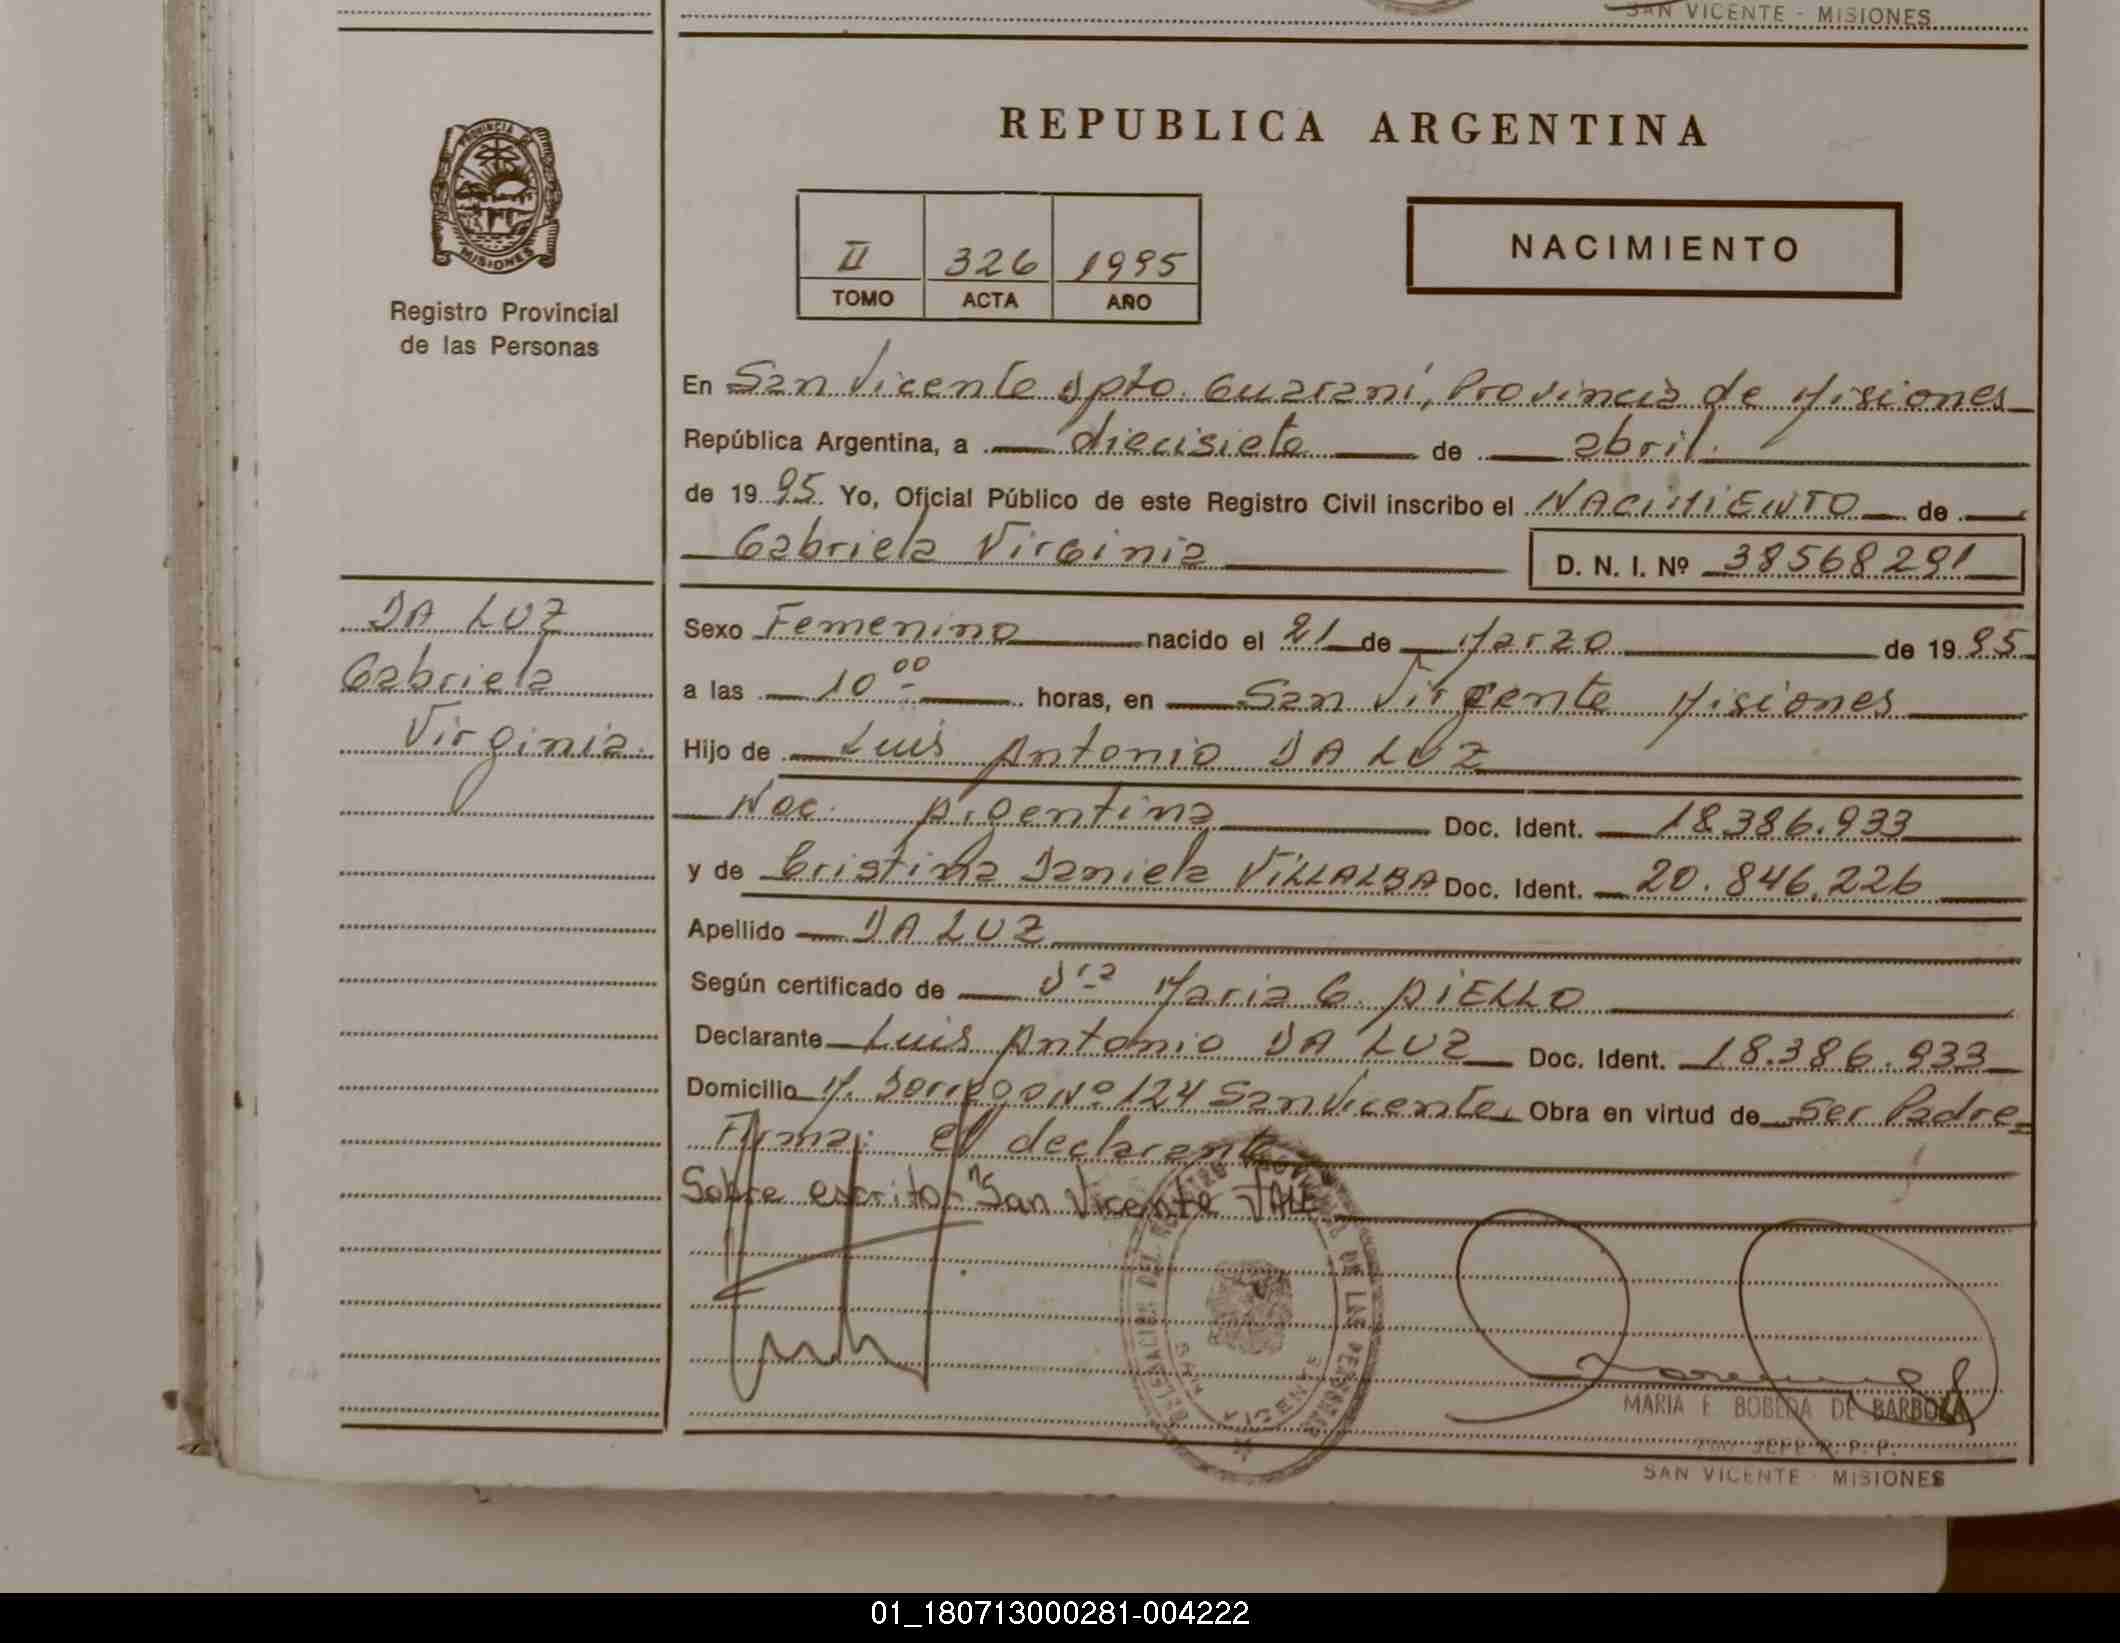 SAN VICENTE - MISIONES
REPUBLICA ARGENTINA
PROVINCIA DE
MISIONES
Registro Provincial
de las Personas
II 326 1995
TOMO ACTA AÑO
NACIMIENTO
En San Vicente Dpto. Guaraní, Provincia de Misiones
República Argentina, a diecisiete de abril.
de 1995. Yo, Oficial Público de este Registro Civil inscribo el NACIMIENTO de
Gabriela Virginia D. N. I. Nº 38568291
DA LUZ
Gabriela
Virginia.
Sexo Femenino nacido el 21 de Marzo de 1995
a las 10 00 horas, en San Vicente Misiones
Hijo de Luis Antonio DA LUZ
Nac. Argentina Doc. Ident. 18.386.933
y de Cristina Daniela VILLALBA Doc. Ident. 20.846.226
Apellido DA LUZ
Según certificado de Dra Maria G. AIELLO
Declarante Luis Antonio DA LUZ Doc. Ident. 18.386.933
Domicilio M. Dorrego Nº 124 San Vicente Obra en virtud de Ser Padre
Firma: el declarante
Sobre escrito: "San Vicente VALE
DELEGACION DEL REGISTRO PROVINCIAL DE LAS PERSONAS
SAN VICENTE
MARIA E BOBEDA DE BARBOZA
JEFE R. P. P.
SAN VICENTE - MISIONES
01_180713000281-004222